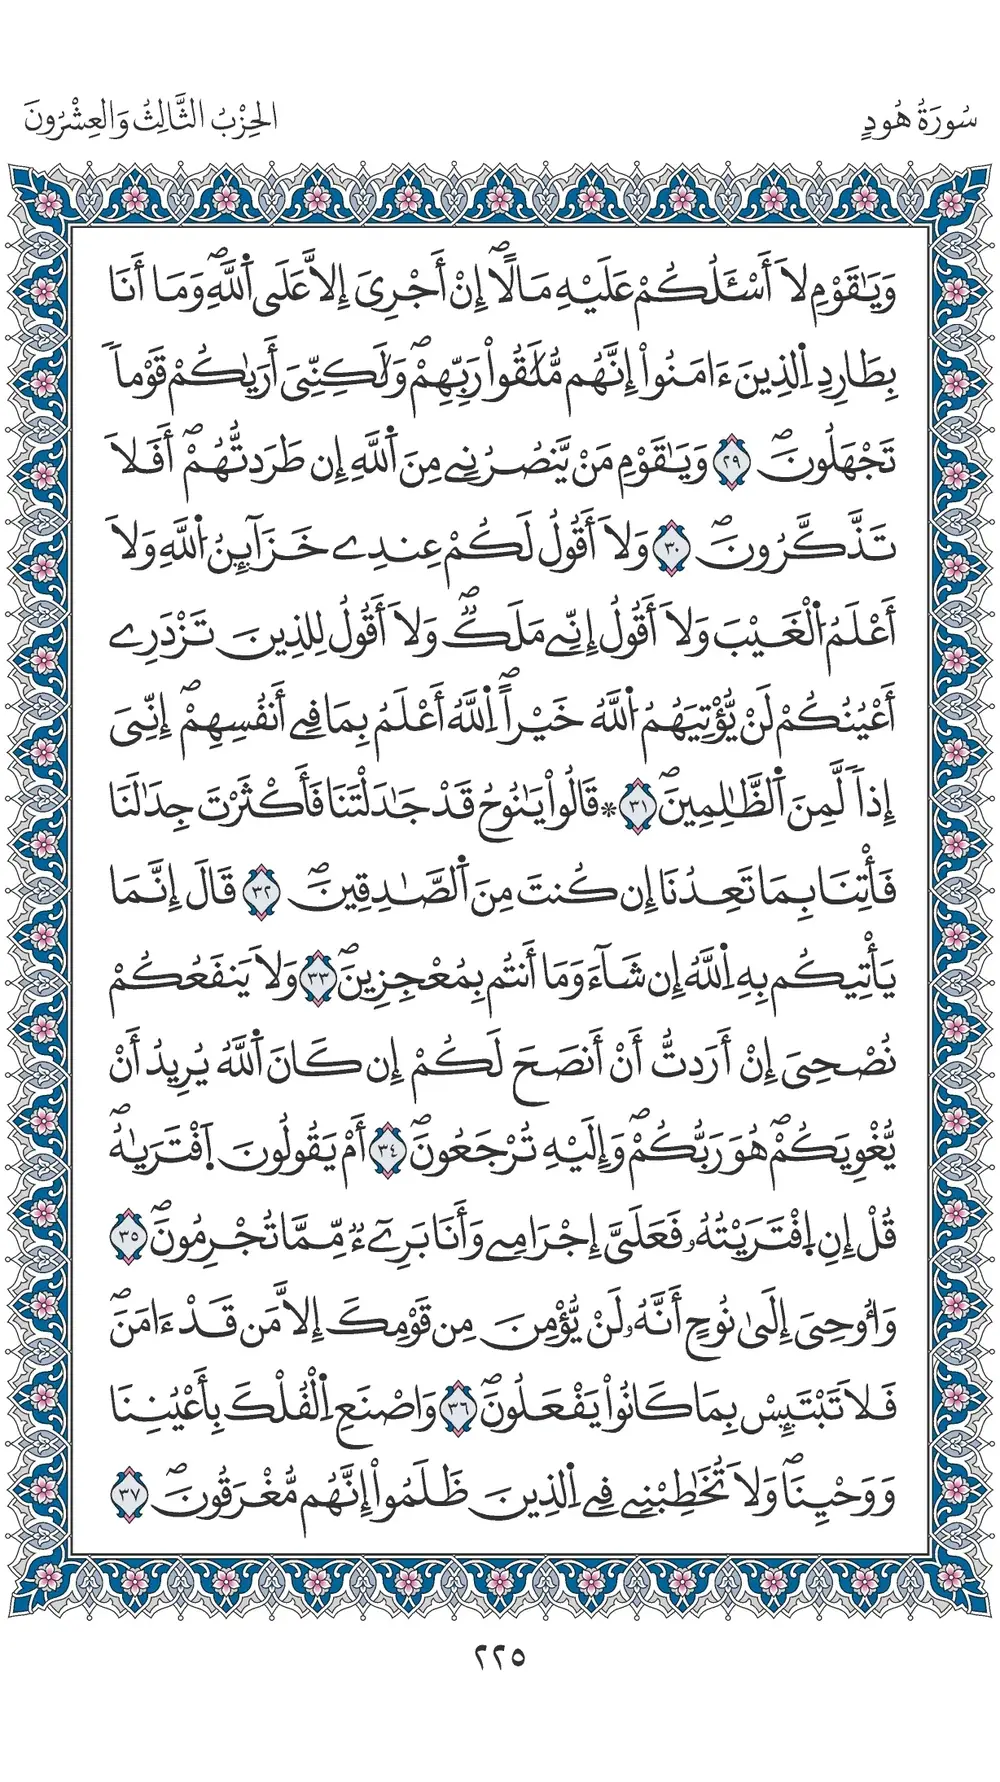 سُورَةُ هُودٍ
الحِزْبُ الثَّالِثُ وَالعِشْرُونَ
وَيَٰقَوْمِ لَا أَسْـَٔلُكُمْ عَلَيْهِ مَالًاۖ إِنْ أَجْرِىَ إِلَّا عَلَى اَ۬للَّهِۖ وَمَا أَنَا
بِطَارِدِ اِ۬لذِينَ ءَامَنُواْ إِنَّهُم مُّلَٰقُواْ رَبِّهِمْۖ وَلَٰكِنِّىَ أَرَيٰكُمْ قَوْماٗ
تَجْهَلُونَۖ ٢٩ وَيَٰقَوْمِ مَنْ يَّنصُرُنِے مِنَ اَ۬للَّهِ إِن طَرَدتُّهُمْۖ أَفَلَا
تَذَّكَّرُونَۖ ٣٠ وَلَا أَقُولُ لَكُمْ عِندِے خَزَآئِنُ اُ۬للَّهِ وَلَا
أَعْلَمُ اُ۬لْغَيْبَ وَلَا أَقُولُ إِنِّے مَلَكٞۖ وَلَا أَقُولُ لِلذِينَ تَزْدَرِے
أَعْيُنُكُمْ لَنْ يُّؤْتِيَهُمُ اُ۬للَّهُ خَيْراًۖ اِ۬للَّهُ أَعْلَمُ بِمَا فِے أَنفُسِهِمْۖ إِنِّىَ
إِذاٗ لَّمِنَ اَ۬لظَّٰلِمِينَۖ ٣١ * قَالُواْ يَٰنُوحُ قَدْ جَٰدَلْتَنَا فَأَكْثَرْتَ جِدَٰلَنَا
فَأْتِنَا بِمَا تَعِدُنَا إِن كُنتَ مِنَ اَ۬لصَّٰدِقِينَۖ ٣٢ قَالَ إِنَّمَا
يَأْتِيكُم بِهِ اِ۬للَّهُ إِن شَآءَ وَمَا أَنتُم بِمُعْجِزِينَۖ ٣٣ وَلَا يَنفَعُكُمْ
نُصْحِىَ إِنْ أَرَدتُّ أَنْ أَنصَحَ لَكُمْ إِن كَانَ اَ۬للَّهُ يُرِيدُ أَنْ
يُّغْوِيَكُمْۖ هُوَ رَبُّكُمْۖ وَإِلَيْهِ تُرْجَعُونَۖ ٣٤ أَمْ يَقُولُونَ اَ۪فْتَرَيٰهُۖ
قُلْ إِنِ اِ۪فْتَرَيْتُهُۥ فَعَلَىَّ إِجْرَامِے وَأَنَا بَرِےٓءٞ مِّمَّا تُجْرِمُونَۖ ٣٥
وَأُوحِىَ إِلَىٰ نُوحٍ أَنَّهُۥ لَنْ يُّؤْمِنَ مِن قَوْمِكَ إِلَّا مَن قَدْ ءَامَنَۖ
فَلَا تَبْتَئِسْ بِمَا كَانُواْ يَفْعَلُونَۖ ٣٦ وَاصْنَعِ اِ۬لْفُلْكَ بِأَعْيُنِنَا
وَوَحْيِنَاۖ وَلَا تُخَٰطِبْنِے فِے اِ۬لذِينَ ظَلَمُواْ إِنَّهُم مُّغْرَقُونَۖ ٣٧
٢٢٥